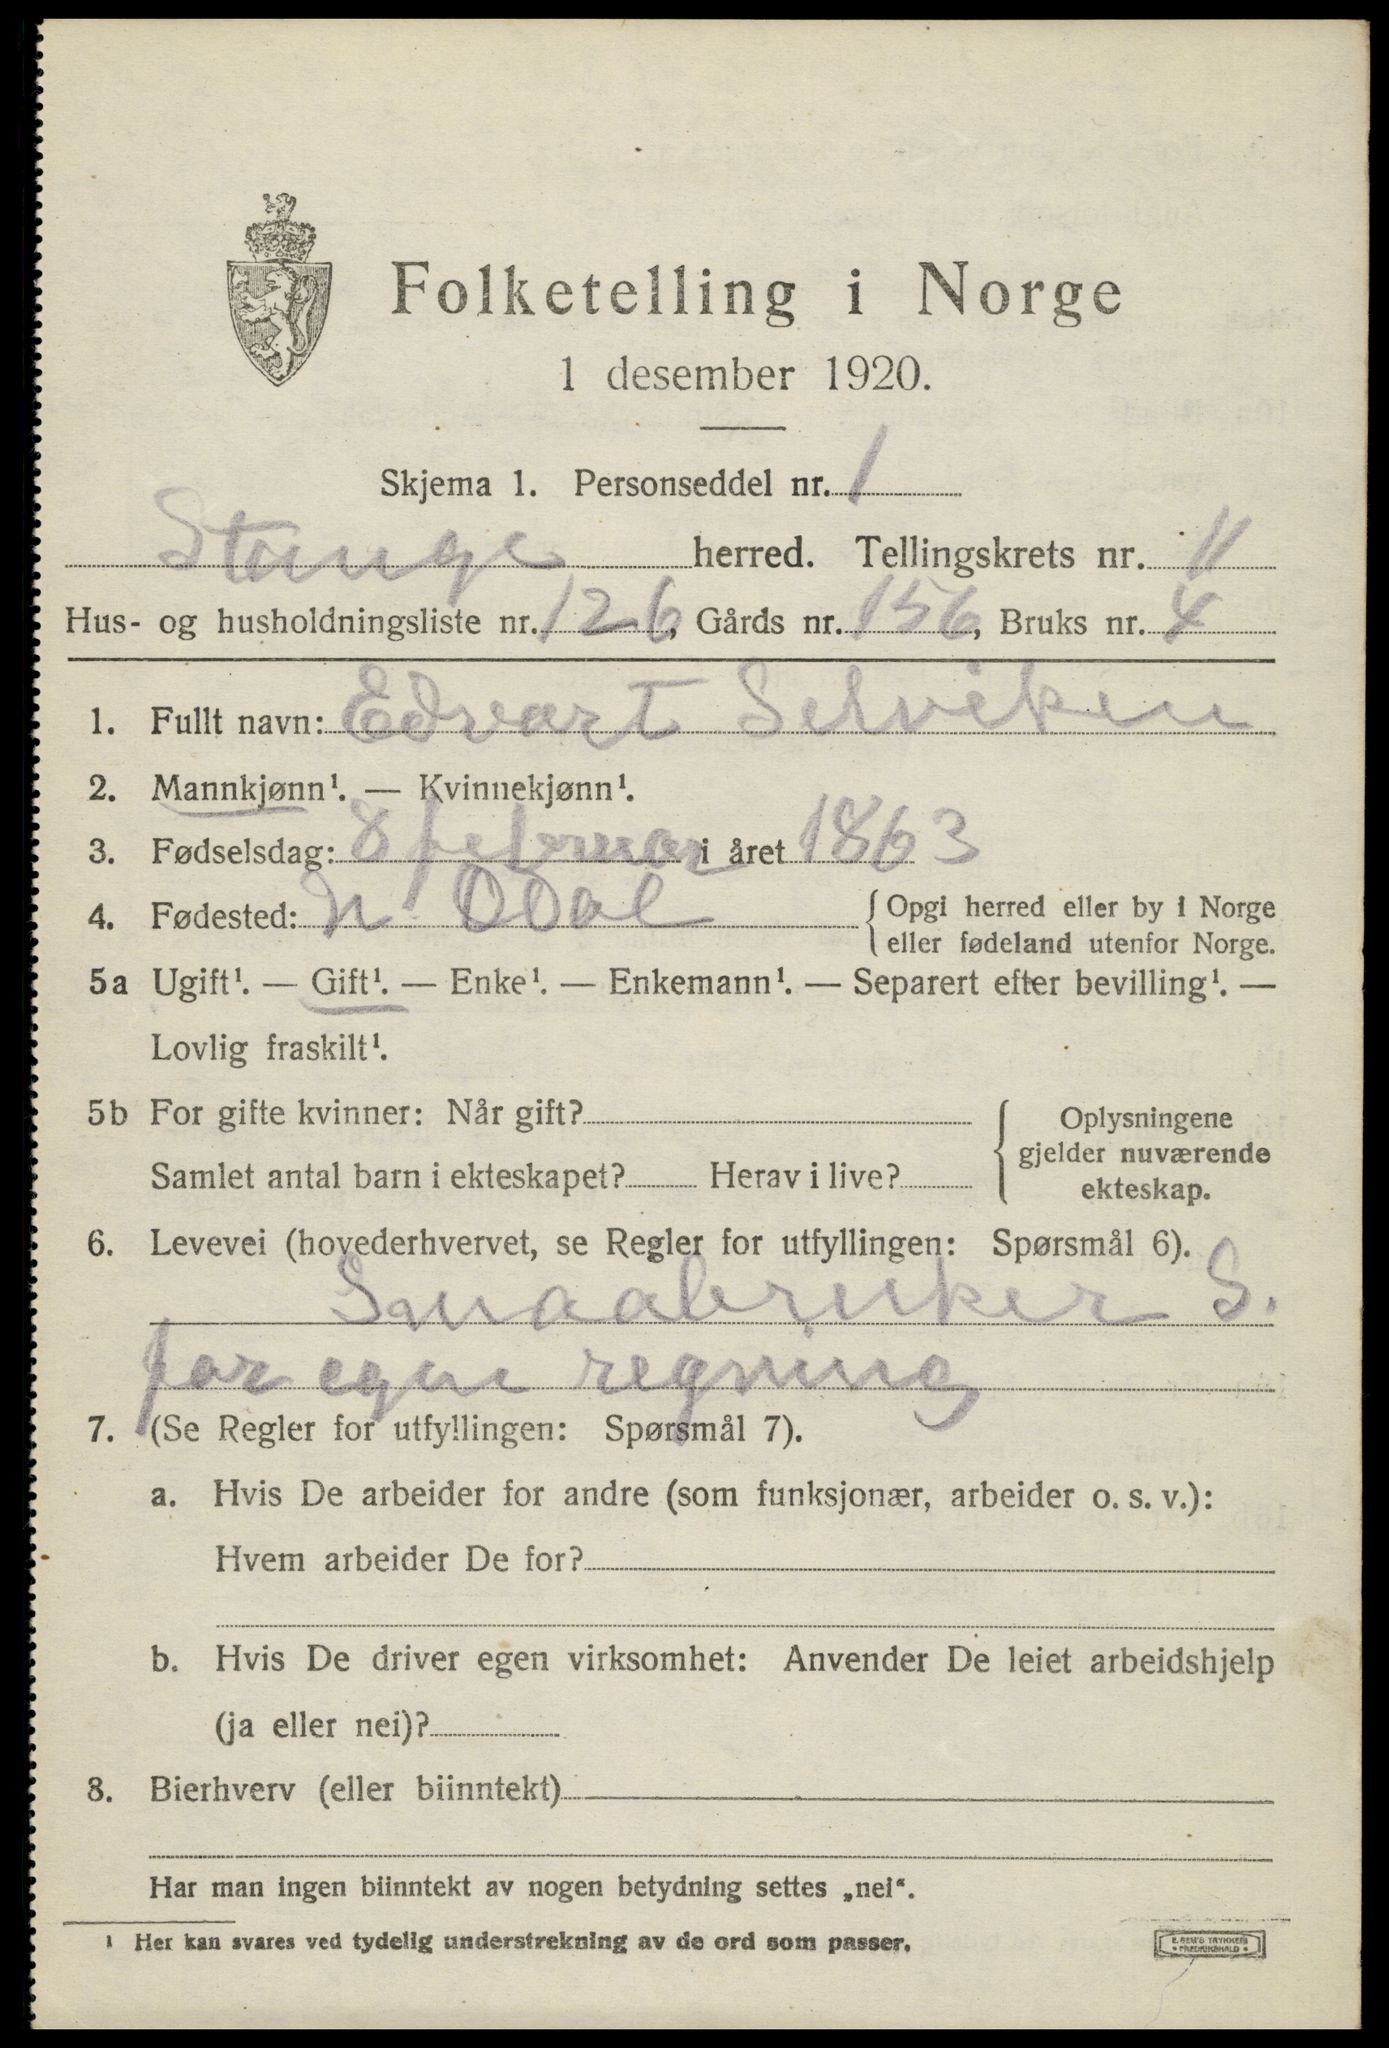 Folketelling i Norge
1 desember 1920.
Skjema 1. Personseddel nr. 1
Stange herred. Tellingskrets nr. 11
Hus- og husholdningsliste nr. 126, Gårds nr. 156, Bruks nr. 4
1. Fullt navn: Edvart Selviken
2. Mannkjønn¹. — Kvinnekjønn¹.
3. Fødselsdag: 8 februar i året 1863
4. Fødested: N Odal {Opgi herred eller by i Norge
eller fødeland utenfor Norge.
5a Ugift¹. — Gift¹. — Enke¹. — Enkemann¹. — Separert efter bevilling¹. —
Lovlig fraskilt¹.
5b For gifte kvinner: Når gift?
Samlet antal barn i ekteskapet? Herav i live?
{Oplysningene
gjelder nuværende
ekteskap.
6. Levevei (hovederhvervet, se Regler for utfyllingen: Spørsmål 6).
Smaabruker S.
for egen regning
7. (Se Regler for utfyllingen: Spørsmål 7).
a. Hvis De arbeider for andre (som funksjonær, arbeider o. s. v.):
Hvem arbeider De for?
b. Hvis De driver egen virksomhet: Anvender De leiet arbeidshjelp
(ja eller nei)?
8. Bierhverv (eller biinntekt)
Har man ingen biinntekt av nogen betydning settes „nei“.
¹ Her kan svares ved tydelig understrekning av de ord som passer.
E. SEM'S TRYKKERI
FREDRIKSHALD